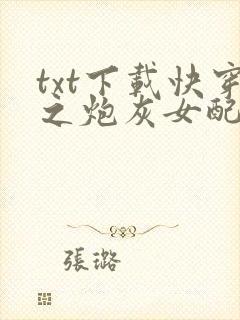 txt下載快穿
之炮灰女配
張璐